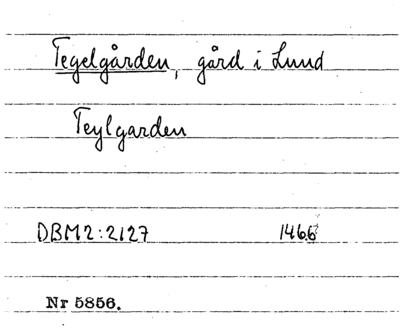 Tegelgården, gård i Lund
Teylgarden
DBM2:2127 1466
Nr 5856.